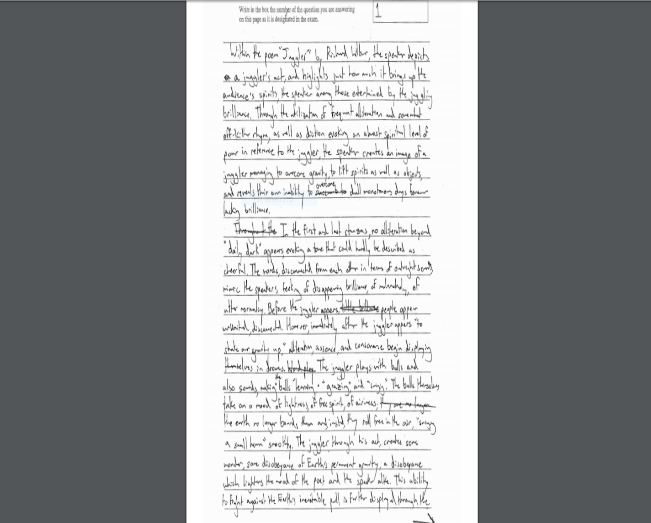 Write in the box the number of the question you are answering
on this page as it is designated in the exam.
1
Within the poem "Juggler" by Richard Wilbur, the speaker depicts
a juggler's act, and highlights just how much it brings up the
audience's spirits, the speaker among those entertained by the juggling
brilliance. Through the utilization of frequent alliteration and somewhat
off-kilter rhyme, as well as diction evoking an almost spiritual level of
power in reference to the juggler, the speaker creates an image of a
juggler managing to overcome gravity, to lift spirits as well as objects,
and reveals their own inability to overcome dull monotonous days
lacking brilliance.
In the first and last stanzas, no alliteration beyond
"daily dark" appears, evoking a tone that could hardly be described as
cheerful. The words, disconnected from each other in terms of outright sound,
mimic the speaker's feeling of disappearing brilliance, of melancholy, of
utter normalcy. Before the juggler appears, people appear
disconnected. However, immediately after the juggler appears "to
shake our gravity up," alliteration, assonance, and consonance begin displaying
themselves in droves. The juggler plays with balls and
also sounds, making the balls and The balls themselves
take on a mood of lightness, of free spirit, of airiness.
the earth no longer bounds them and, instead, they roll free in the air,
a small smoothly. The juggler, through his act, creates some
wonder, some disobeyance of Earth's permanent gravity, a disobeyance
which lightens the mood of the poet and the speaker alike. This ability
to fight against the Earth's inevitable pull is further displayed through the